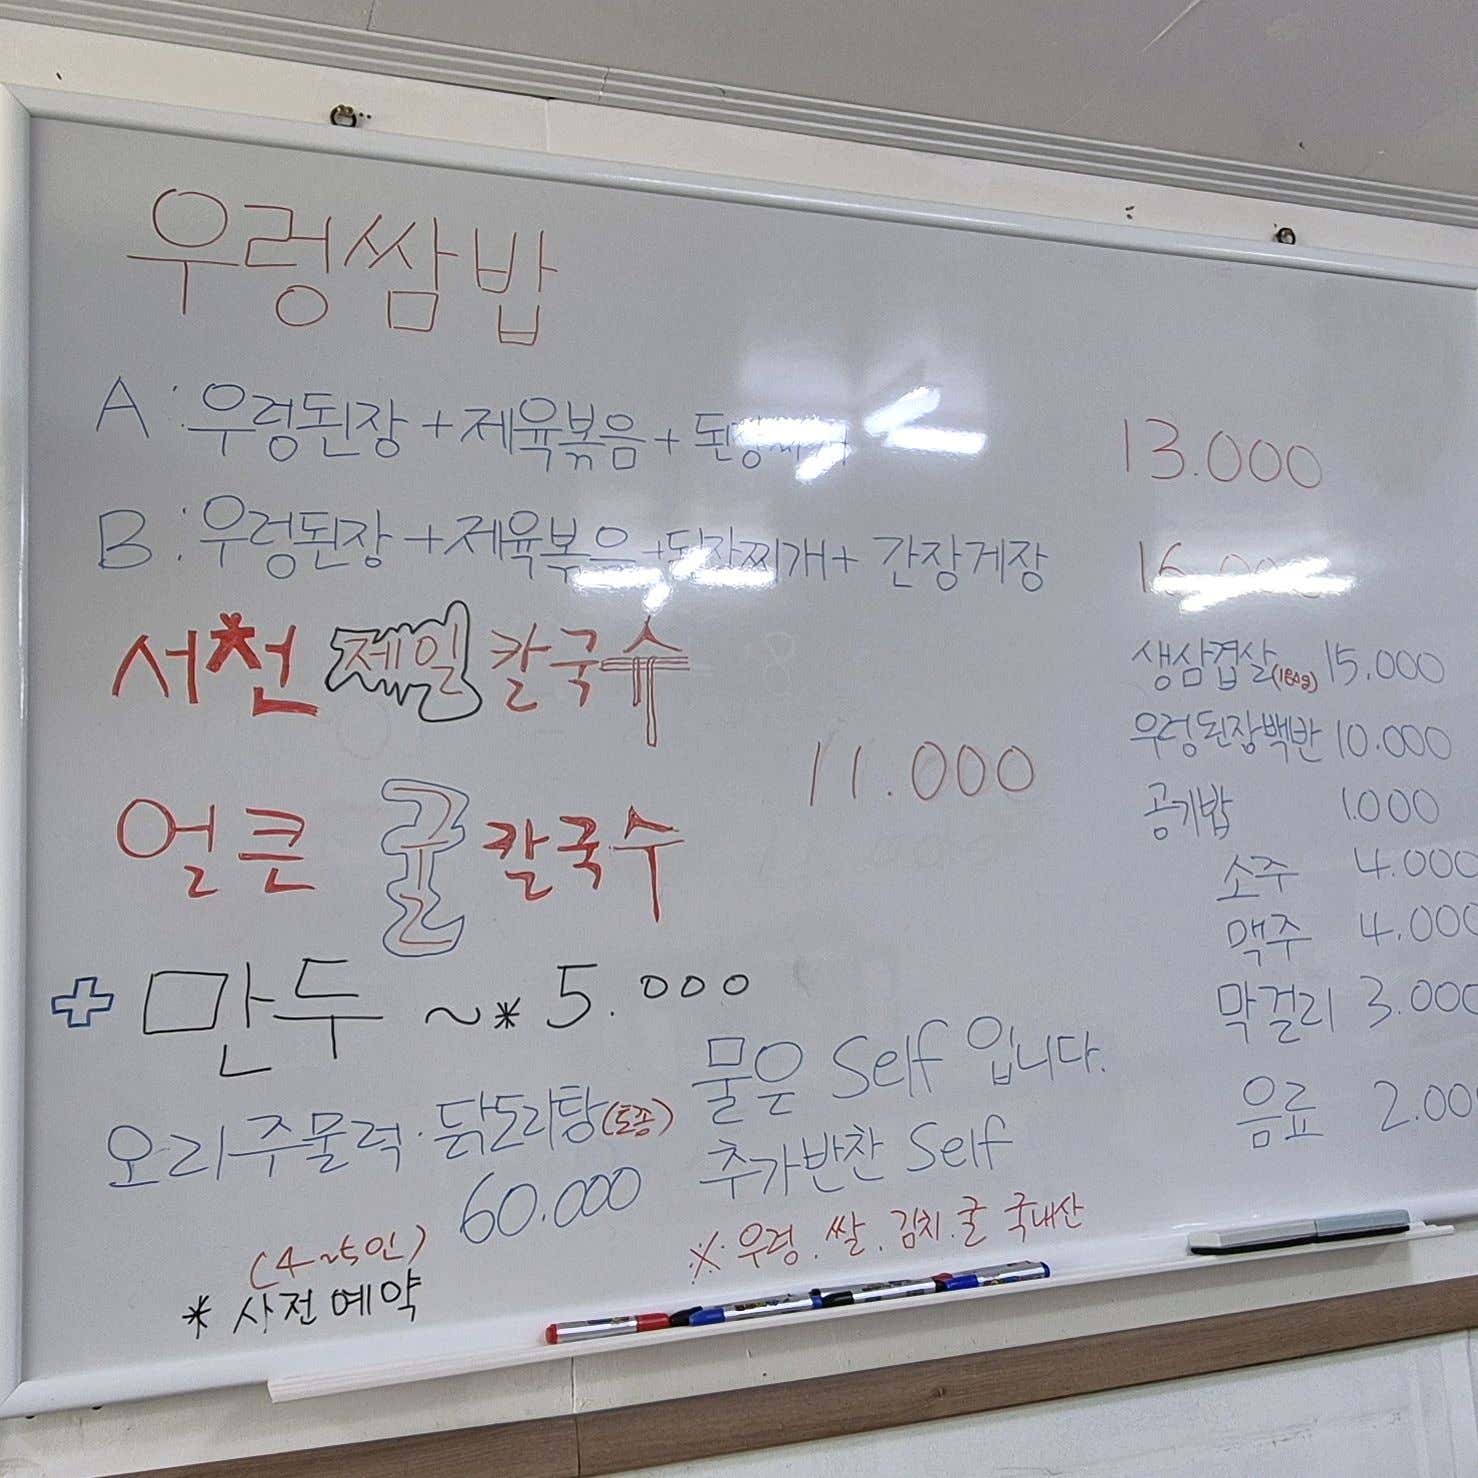 우렁쌈밥
A : 우렁된장 + 제육볶음 + 된장찌개 13.000
B : 우렁된장 + 제육볶음 + 된장찌개 + 간장게장 16.000
서천 제일 칼국수
얼큰 굴 칼국수
11.000
+ 만두 ~* 5.000
오리주물럭. 닭도리탕(토종)
60.000
(4~5인)
* 사전예약
물은 Self 입니다.
추가반찬 Self
※ 우렁. 쌀. 김치. 굴 국내산
생삼겹살(180g) 15.000
우렁된장백반 10.000
공기밥 1.000
소주 4.000
맥주 4.000
막걸리 3.000
음료 2.000